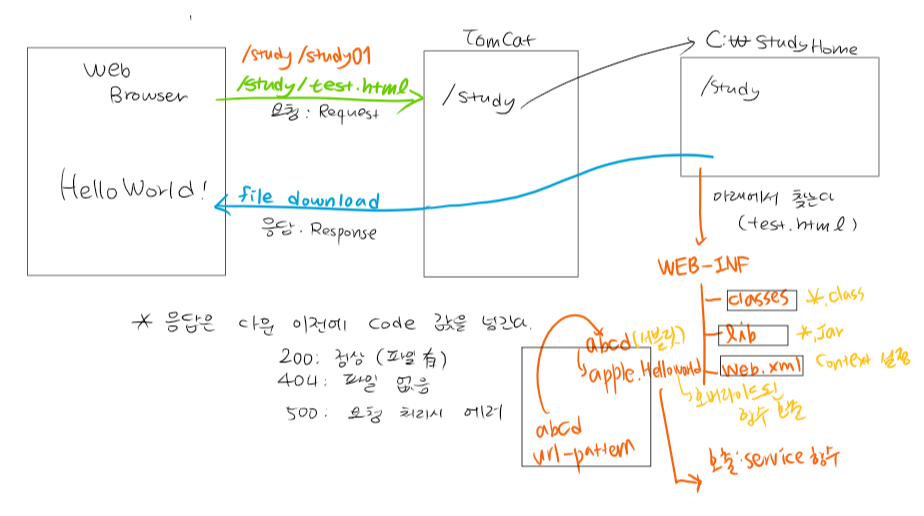 Web
Browser
HelloWorld!
/study/study01
/study/test.html
요청: Request
file download
응답. Response
TomCat
/study
C:\ StudyHome
/study
아래에서 찾는다
(test.html)
WEB-INF
classes *.class
lib *.Jar
web.xml Context 설정
* 응답은 다운 이전에 code 값을 넘긴다.
200: 정상 (파일 有)
404: 파일 없음
500: 요청 처리시 에러
abcd(서블릿)
apple.Helloworld
오버라이드된
함수 호출
abcd
url-pattern
호출:service 함수